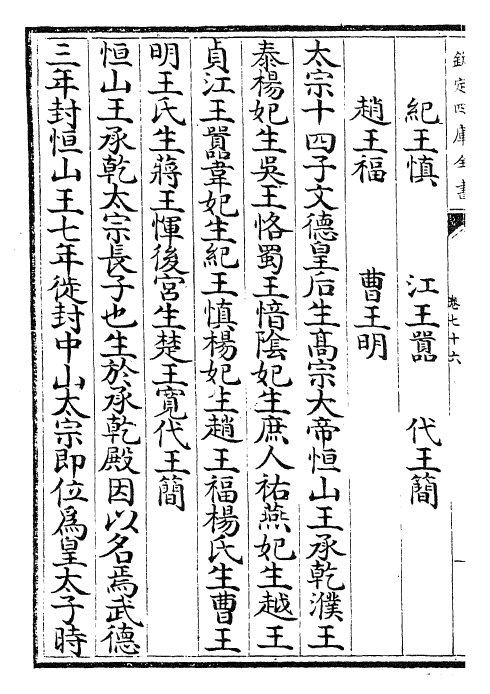 欽定四庫全書
卷七十六
紀王慎 江王囂 代王簡
趙王福 曹王明
太宗十四子文德皇后生髙宗大帝恒山王承乾濮王
泰楊妃生吳王恪蜀王愔陰妃生庶人祐燕妃生越王
貞江王囂韋妃生紀王慎楊妃生趙王福楊氏生曹王
明王氏生蔣王惲後宮生楚王寛代王簡
恒山王承乾太宗長子也生於承乾殿因以名焉武德
三年封恒山王七年徙封中山太宗即位爲皇太子時